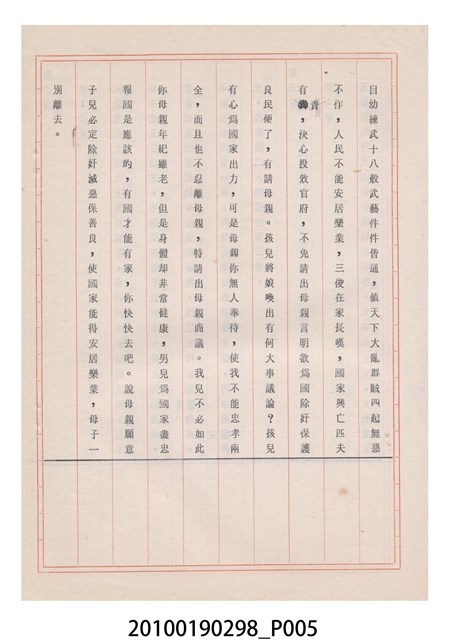 自幼練武十八般武藝件件皆通,值天下大亂群賊四起無惡
不作,人民不能安居樂業,三俊在家長嘆,國家興亡匹夫
有責,決心投效官府,不免請出母親言明欲爲國除奸保護
良民便了,有請母親。孩兒將娘喚出有何大事議論?孩兒
有心爲國家出力,可是母親你無人奉待,使我不能忠孝兩
全,而且也不忍離母親,特請出母親商議。我兒不必如此
你母親年紀雖老,但是身體却非常健康,男兒爲國家盡忠
報國是應該的,有國才能有家,你快快去吧。說母親願意
子兒必定除奸滅惡保善良,使國家能得安居樂業,母子一
別離去。
20100190298_P005